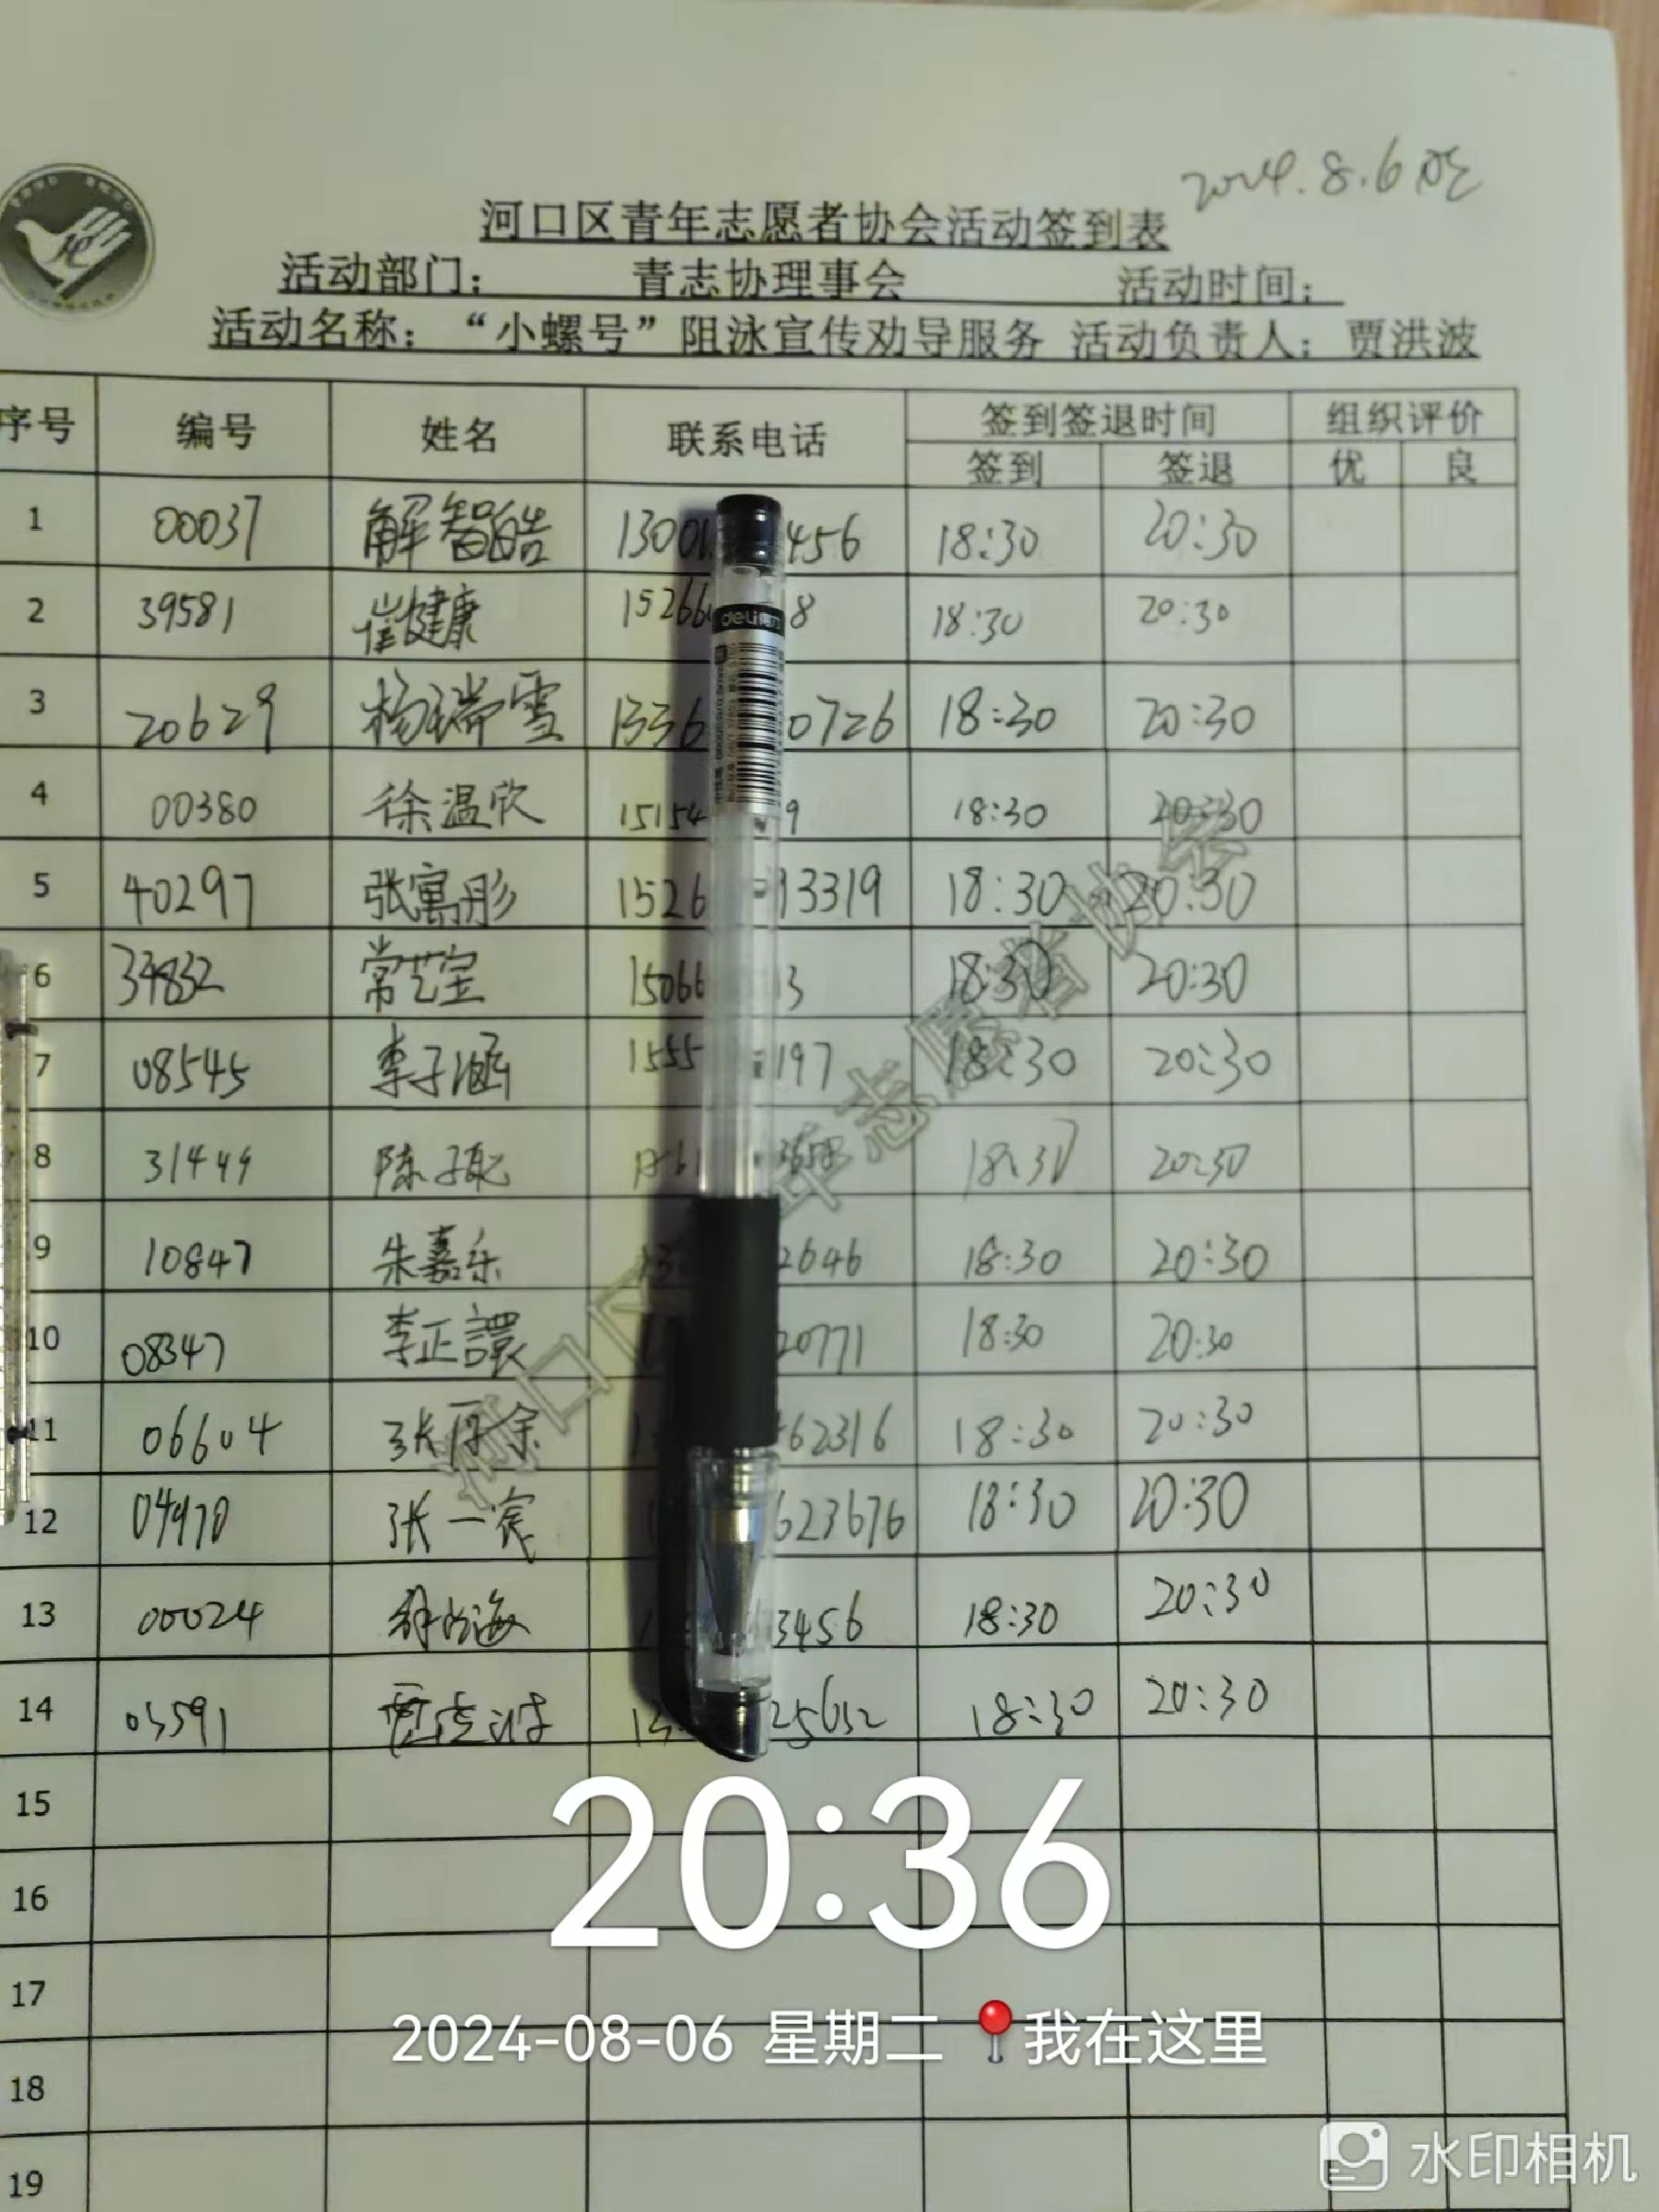 2024.8.6 晚
河口区青年志愿者协会活动签到表
活动部门： 青志协理事会 活动时间：
活动名称：“小螺号”阻泳宣传劝导服务 活动负责人：贾洪波
序号 编号 姓名 联系电话 签到签退时间 组织评价
签到 签退 优 良
1 00037 解智皓 1300 456 18:30 20:30
2 39581 崔健康 15266 8 18:30 20:30
3 20629 杨瑞雪 1336 0726 18:30 20:30
4 00380 徐温欣 15154 9 18:30 20:30
5 40297 张寓彤 1526 13319 18:30 20:30
6 常艺宝 15066 13 18:30 20:30
7 08545 李子涵 1555 197 18:30 20:30
8 31449 陈子 18:30 20:30
9 10847 朱嘉乐 2646 18:30 20:30
10 08347 李正 20771 18:30 20:30
11 06604 张 62316 18:30 20:30
12 04970 张一宸 623676 18:30 20:30
13 00024 海 3456 18:30 20:30
14 03591 贾洪波 18:30 20:30
15
16
17
18
19
deli
河口区青年志愿者协会
20:36
2024-08-06 星期二 我在这里
水印相机